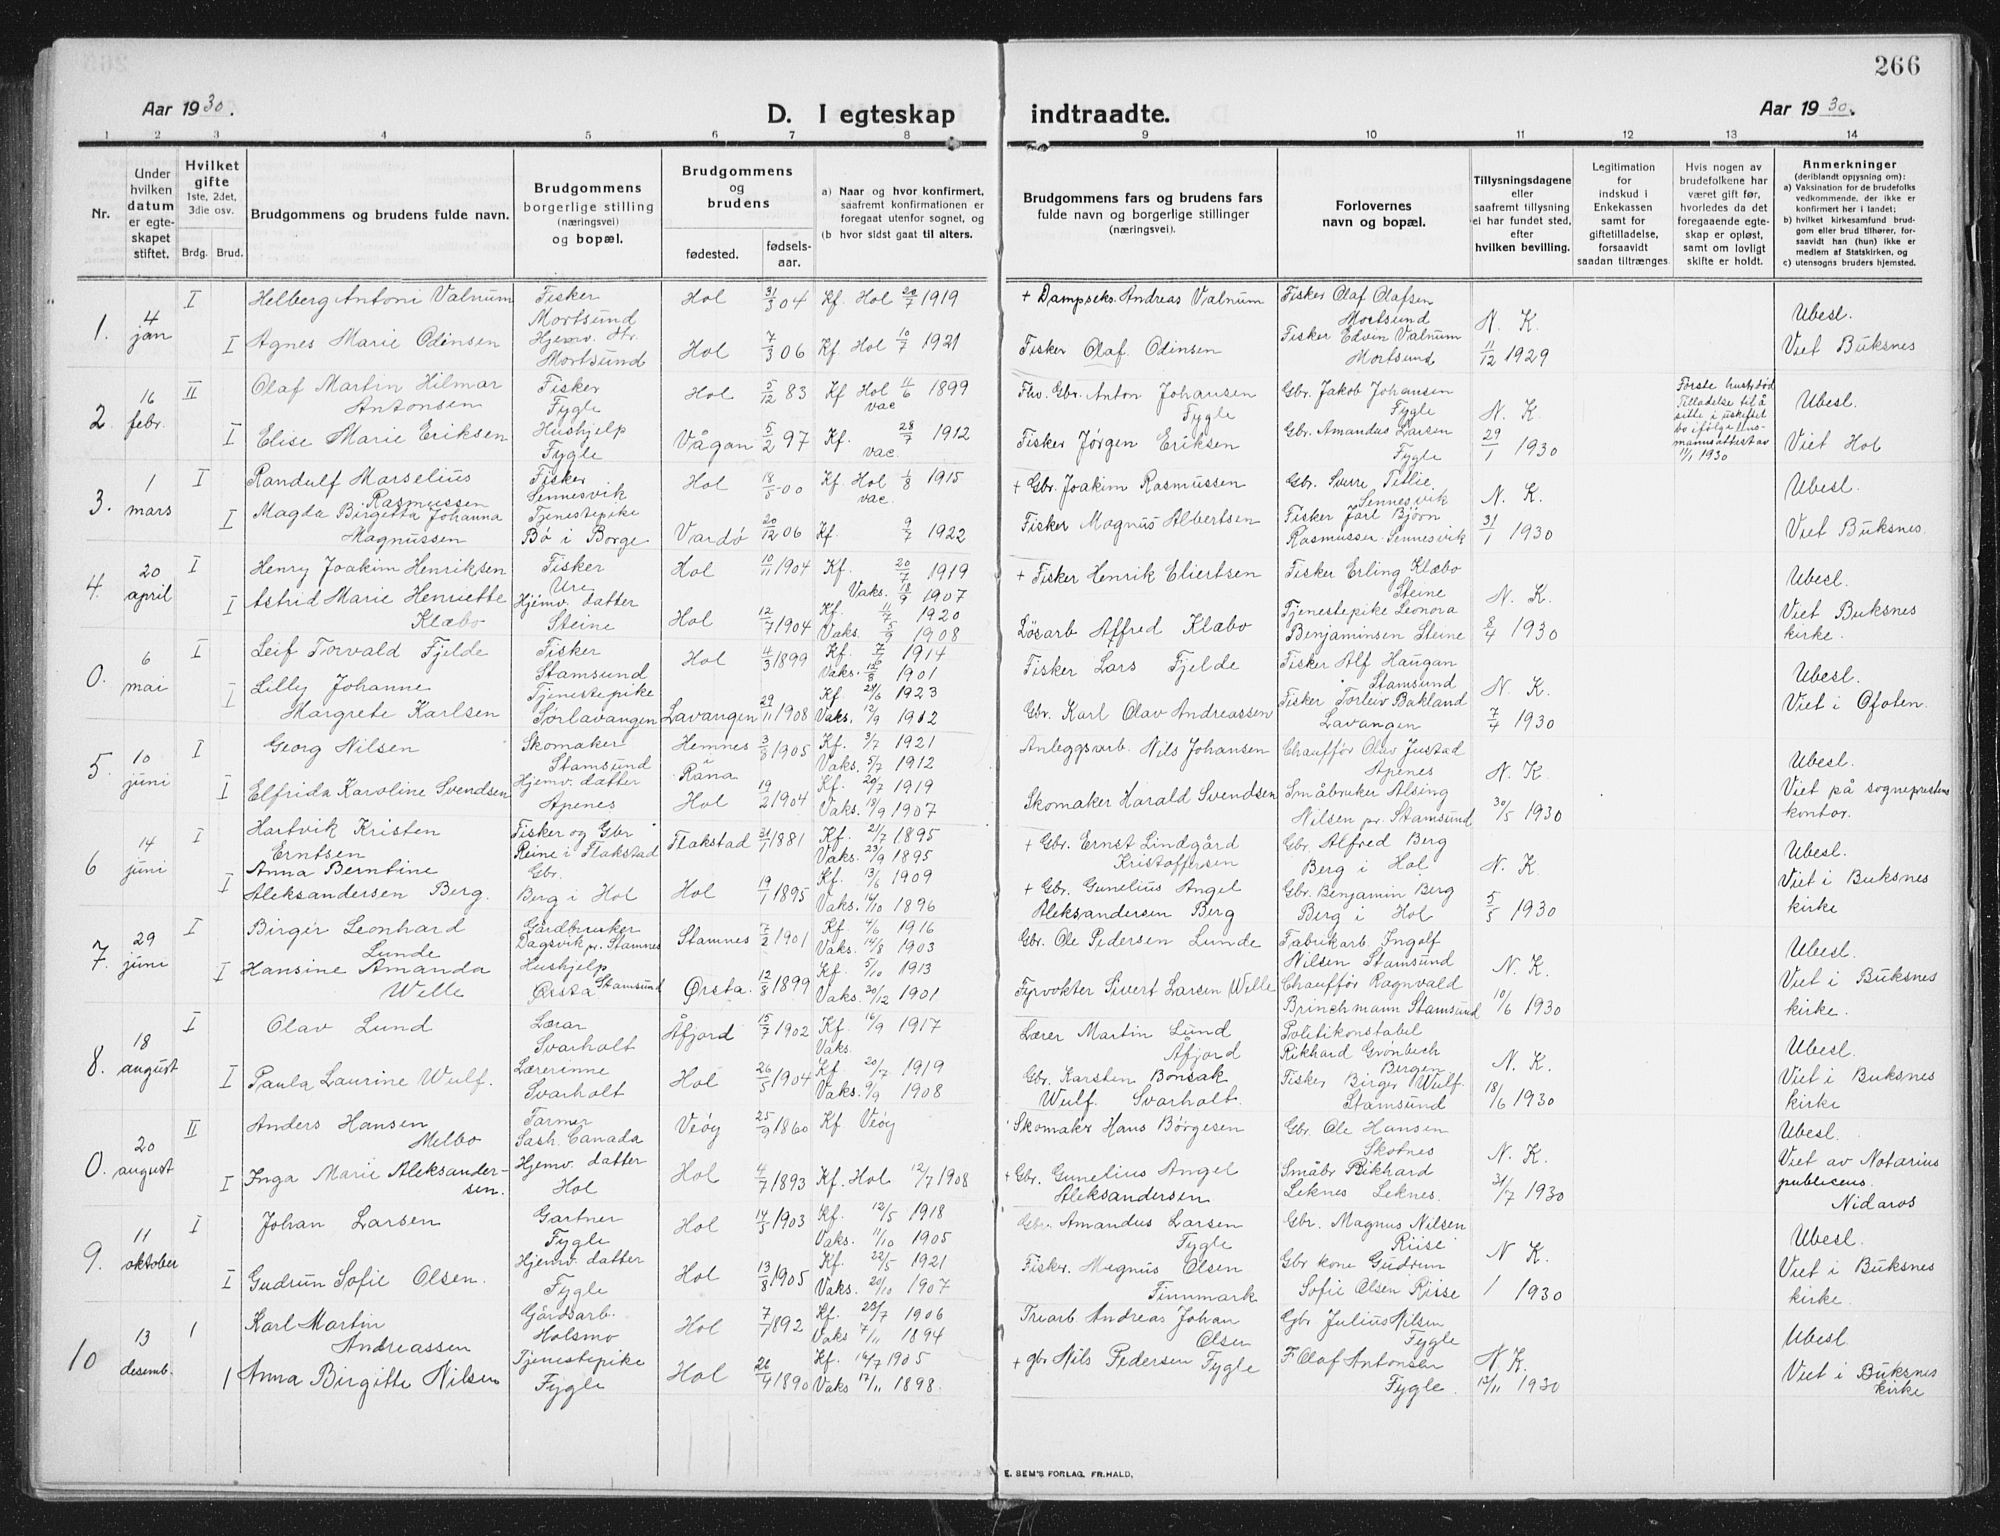 266
Aar 1930.
D. I egteskap indtraadte.
Aar 1930.
1 2 3 4 5 6 7 8 9 10 11 12 13 14
Nr.
Under hvilken datum er egteskapet stiftet.
Hvilket gifte 1ste, 2det, 3die osv.
Brdg. Brud.
Brudgommens og brudens fulde navn.
Brudgommens borgerlige stilling (næringsvei) og bopæl.
Brudgommens og brudens
fødested.
fødsels-aar.
a) Naar og hvor konfirmert, saafremt konfirmationen er foregaat utenfor sognet, og
(b hvor sidst gaat til alters.
Brudgommens fars og brudens fars fulde navn og borgerlige stillinger (næringsvei).
Forlovernes navn og bopæl.
Tillysningsdagene eller saafremt tillysning ei har fundet sted, efter hvilken bevilling.
Legitimation for indskud i Enkekassen samt for giftetilladelse, forsaavidt saadan tiltrænges
Hvis nogen av brudefolkene har været gift før, hvorledes da det foregaaende egteskap er opløst, samt om lovligt skifte er holdt.
Anmerkninger (deriblandt opjysning om):
a) Vaksination for de brudefolks vedkommende, der ikke er konfirmert her i landet;
b) hvilket kirkesamfund brudgom eller brud tilhører, forsaavidt han (hun) ikke er medlem af Statskirken, og
c) utensogns bruders hjemsted.
1. 4 jan
I Helberg Antoni Valnum Fisker Mortsund Hol 31/3 04 Kf. Hol 20/7 1919 + Dampseks. Andreas Valnum Fisker Olaf Olafsen Mortsund
I Agnes Marie Odinsen Hjemv. dtr. Mortsund Hol 7/3 06 Kf. Hol 10/7 1921 Fisker Olaf Odinsen Fisker Edvin Valnum Mortsund N. K. 11/12 1929 Ubesl. Viet Buksnes
2. 16 febr.
II Olaf Martin Hilmar Antonsen Fisker Fygle Hol 5/12 83 Kf Hol 11/6 1899 vac Fhv. Gbr. Anton Johansen Fygle Gbr. Jakob Johansen Fygle
I Elise Marie Eriksen Hushjelp Fygle Vågan 5/2 97 Kf. 28/7 1912 vac. Fisker Jørgen Eriksen Gbr. Amandus Larsen Fygle N. K. 29/1 1930
Første hustr. død Tilladelse til å sitte i uskiftet bo ifølge lensmannsattest av 11/1 1930
Ubesl. Viet Hol
3. 1 mars
I Randulf Marselius Rasmussen Fisker Sennesvik Hol 18/5 00 Kf. Hol 1/8 1915 vac. + Gbr. Joakim Rasmussen Gbr. Sverre Titlie Sennesvik
I Magda Birgitta Johanna Magnussen Tjenestepike Bø i Borge Vardø 20/12 06 Kf. 9/7 1922 Fisker Magnus Albertsen Fisker Jarl Bjørn Rasmussen Sennesvik N. K. 31/1 1930 Ubesl. Viet Buksnes
4. 20 april
I Henry Joakim Henriksen Fisker Ure Hol 10/11 1904 Kf. 20/7 1919 Vaks. 18/9 1907 + Fisker Henrik Eliertsen Fisker Erling Klæbo Steine
I Astrid Marie Henriette Klæbo Hjemv. datter Steine Hol 12/7 1904 Kf. 11/7 1920 Vaks. 5/9 1908 Løsarb Alfred Klæbo Tjenestepike Leonora Benjaminsen Steine N. K. 8/4 1930 Ubesl. Viet Buksnes kirke.
0. 6 mai
I Leif Torvald Fjelde Fisker Stamsund Hol 4/3 1899 Kf. 1914 Vaks. 1901 Fisker Lars Fjelde Fisker Alf Haugan Stamsund
I Lilly Johanne Margrete Karlsen Tjenestepike Sørlavangen Lavangen 29/11 1908 Kf. 24/6 1923 Vaks. 12/9 1912 Gbr. Karl Olav Andreassen Fisker Torleiv Bakland Lavangen N. K. 7/4 1930 Ubesl. Viet i Ofoten.
5. 10 juni
I Georg Nilsen Skomaker Stamsund Hemnes i Rana 3/3 1905 Kf. 3/7 1921 Vaks. 5/7 1912 Anleggsarb. Nils Johansen Chauffør Olav Justad Apenes
I Elfrida Karoline Svendsen Hjemv. datter Apenes Hol 19/2 1904 Kf. 20/7 1919 Vaks. 18/9 1907 Skomaker Harald Svendsen Småbruker Alsing Nilsen pr. Stamsund N. K. 30/5 1930 Ubesl. Viet på sogneprestens kontor.
6 14 juni
I Hartvik Kristen Erntsen Fisker og Gbr Reine i Flakstad Flakstad 31/7 1881 Kf. 21/7 1895 Vaks. 23/9 1895 + Gbr. Ernst Lindgård Kristoffersen Gbr. Alfred Berg Berg i Hol
I Anna Berntine Aleksandersen Berg. Gbr. Berg i Hol Hol 19/1 1895 Kf. 13/6 1909 Vaks. 16/10 1896 + Gbr. Gunelius Angel Aleksandersen Berg Gbr. Benjamin Berg Berg i Hol N. K. 5/5 1930 Ubesl. Viet i Buksnes kirke
7. 29 juni
I Birger Leonhard Lunde Gårdbruker Dagsvik pr. Stamnes Stamnes 7/2 1901 Kf 4/6 1916 Vaks. 14/8 1903 Gbr. Ole Pedersen Lunde Fabrikarb Ingolf Nilsen Stamsund
I Hansine Amanda Welle Hushjelp Ørsta Stamsund Ørsta. 12/8 1899 Kf. 5/10 1913 Vaks. 20/12 1901 Fyrvokter Sivert Larsen Welle Chauffør Ragnvald Brinchmann Stamsund N. K. 10/6 1930 Ubesl. Viet i Buksnes kirke.
8. 18 august
I Olav Lund Lærar Svarholt Åfjord 15/7 1902 Kf. 16/9 1917 Vaks. Lærer Martin Lund Åfjord Politikonstabel Rikhard Grønbech Bergen
I Paula Laurine Wulf. Lærerinne Svarholt Hol 26/5 1904 Kf. 20/7 1919 Vaks. 9/9 1908 Gbr. Karsten Bonsak Wulf. Svarholt. Fisker Birger Wulf. Stamsund N. K. 18/6 1930 Ubesl. Viet i Buksnes kirke
0. 20 august
II Anders Hansen Melbo Farmer Sash. Canada Veøy 25/9 1860 Kf Veöy Skomaker Hans Børgesen Gbr. Ole Hansen Skotnes
I Inga Marie Aleksandersen. Hjemv. datter Hol Hol 4/7 1893 Kf. Hol 12/7 1908 + Gbr. Gunelius Angel Aleksandersen Småbr Rikhard Leknes Leknes. N. K. 31/7 1930 Ubesl. Viet av Notarius publicens. Nidaros
9. 11 oktober
I Johan Larsen Gartner Fygle Hol 14/5 1903 Kf. 12/5 1918 Vaks. 11/10 1905 Gbr. Amandus Larsen Fygle Gbr. Magnus Nilsen Riise
I Gudrun Sofie Olsen. Hjemv. datter Fygle Hol 13/8 1905 Kf. 22/5 1921 Vaks. 20/10 1907 Fisker. Magnus Olsen Finnmark Gbr kone Gudrun Sofie Olsen Riise N K. 1 1930 Ubesl. Viet i Buksnes kirke.
10 13 desemb.
1 Karl Martin Andreassen Gårdsarb. Holsmo Hol 7/7 1892 Kf. 22/7 1906 Vaks 7/11 1894 Truarb Andreas Johan Olsen Gbr Julius Nilsen Fygle
1 Anna Birgitte Nilsen Tjenestepike Fygle Hol 26/4 1890 Kf. 16/7 1905 Vaks 17/11 1898. + gbr Nils Pedersen Fygle F Olaf Antonsen Fygle. N. K. 12/11 1930 Ubesl Viet i Buksnes kirke
E. SEM'S FORLAG. FR.HALD.